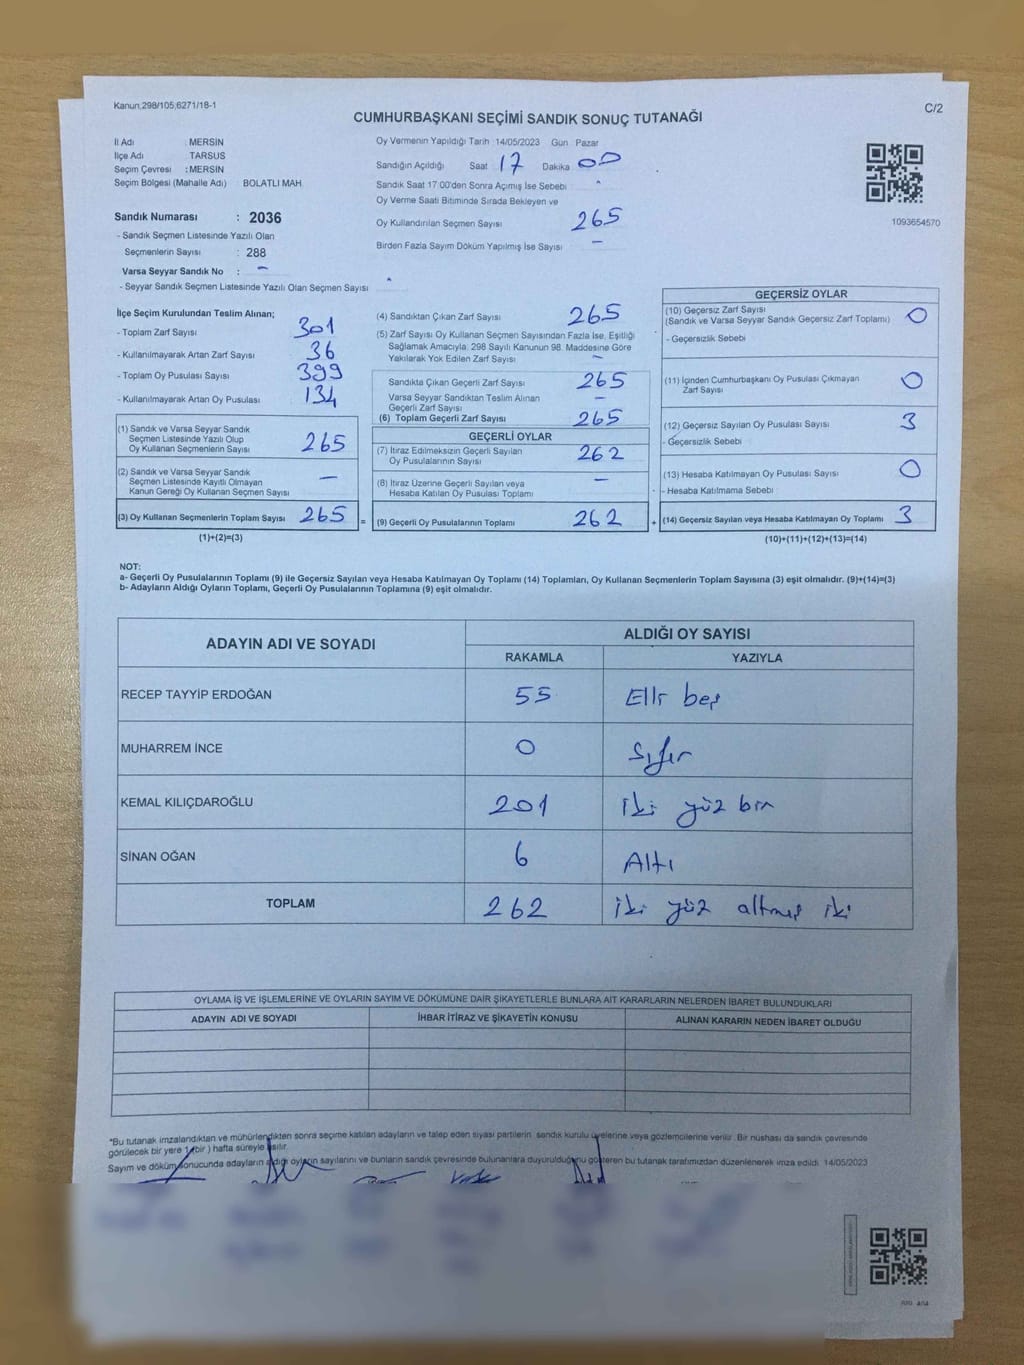 Kanun,298/105,6271/18-1
C/2
CUMHURBAŞKANI SEÇİMİ SANDIK SONUÇ TUTANAĞI
İl Adı : MERSİN
İlçe Adı TARSUS
Seçim Çevresi : MERSİN
Seçim Bölgesi (Mahalle Adı) BOLATLI MAH
Sandık Numarası : 2036
- Sandık Seçmen Listesinde Yazılı Olan
Seçmenlerin Sayısı : 288
Varsa Seyyar Sandık No : -
- Seyyar Sandık Seçmen Listesinde Yazılı Olan Seçmen Sayısı
Oy Vermenin Yapıldığı Tarih :14/05/2023 Gün Pazar
Sandığın Açıldığı Saat 17 Dakika 00
Sandık Saat 17:00'den Sonra Açmış İse Sebebi
Oy Verme Saati Bitiminde Sırada Bekleyen ve
Oy Kullandırılan Seçmen Sayısı 265
Birden Fazla Sayım Döküm Yapılmış İse Sayısı -
1093654570
İlçe Seçim Kurulundan Teslim Alınan;
- Toplam Zarf Sayısı 301
- Kullanılmayarak Artan Zarf Sayısı 36
- Toplam Oy Pusulası Sayısı 399
- Kullanılmayarak Artan Oy Pusulası 134
(1) Sandık ve Varsa Seyyar Sandık
Seçmen Listesinde Yazılı Olup
Oy Kullanan Seçmenlerin Sayısı 265
(2) Sandık ve Varsa Seyyar Sandık
Seçmen Listesinde Kayıtlı Olmayan
Kanun Gereği Oy Kullanan Seçmen Sayısı -
(3) Oy Kullanan Seçmenlerin Toplam Sayısı 265 =
(1)+(2)=(3)
(4) Sandıktan Çıkan Zarf Sayısı 265
(5) Zarf Sayısı Oy Kullanan Seçmen Sayısından Fazla İse, Eşitliği
Sağlamak Amacıyla, 298 Sayılı Kanunun 98. Maddesine Göre
Yakılarak Yok Edilen Zarf Sayısı -
Sandıkta Çıkan Geçerli Zarf Sayısı 265
Varsa Seyyar Sandıktan Teslim Alınan
Geçerli Zarf Sayısı -
(6) Toplam Geçerli Zarf Sayısı 265
GEÇERLİ OYLAR
(7) İtiraz Edilmeksizin Geçerli Sayılan
Oy Pusulalarının Sayısı 262
(8) İtiraz Üzerine Geçerli Sayılan veya
Hesaba Katılan Oy Pusulası Toplamı -
(9) Geçerli Oy Pusulalarının Toplamı 262 +
GEÇERSİZ OYLAR
(10) Geçersiz Zarf Sayısı
(Sandık ve Varsa Seyyar Sandık Geçersiz Zarf Toplamı) 0
- Geçersizlik Sebebi
(11) İçinden Cumhurbaşkanı Oy Pusulası Çıkmayan
Zarf Sayısı 0
(12) Geçersiz Sayılan Oy Pusulası Sayısı 3
- Geçersizlik Sebebi
(13) Hesaba Katılmayan Oy Pusulası Sayısı 0
- Hesaba Katılmama Sebebi
(14) Geçersiz Sayılan veya Hesaba Katılmayan Oy Toplamı 3
(10)+(11)+(12)+(13)=(14)
NOT:
a- Geçerli Oy Pusulalarının Toplamı (9) ile Geçersiz Sayılan veya Hesaba Katılmayan Oy Toplamı (14) Toplamları, Oy Kullanan Seçmenlerin Toplam Sayısına (3) eşit olmalıdır. (9)+(14)=(3)
b- Adayların Aldığı Oyların Toplamı, Geçerli Oy Pusulalarının Toplamına (9) eşit olmalıdır.
ADAYIN ADI VE SOYADI
ALDIĞI OY SAYISI
RAKAMLA YAZIYLA
RECEP TAYYİP ERDOĞAN 55 Elli beş
MUHARREM İNCE 0 Sıfır
KEMAL KILIÇDAROĞLU 201 iki yüz bir
SİNAN OĞAN 6 Altı
TOPLAM 262 iki yüz altmış iki
OYLAMA İŞ VE İŞLEMLERİNE VE OYLARIN SAYIM VE DÖKÜMÜNE DAİR ŞİKAYETLERLE BUNLARA AİT KARARLARIN NELERDEN İBARET BULUNDUKLARI
ADAYIN ADI VE SOYADI İHBAR İTİRAZ VE ŞİKAYETİN KONUSU ALINAN KARARIN NEDEN İBARET OLDUĞU
*Bu tutanak imzalandıktan ve mühürlendikten sonra seçime katılan adayların ve talep eden siyasi partilerin sandık kurulu üyelerine veya gözlemcilerine verilir. Bir nüshası da sandık çevresinde
görülecek bir yere 1 (bir) hafta süreyle asılır.
Sayım ve döküm sonucunda adayların aldığı oyların sayılarını ve bunların sandık çevresinde bulunanlara duyurulduğunu gösteren bu tutanak tarafımızdan düzenlenerek imza edildi. 14/05/2023